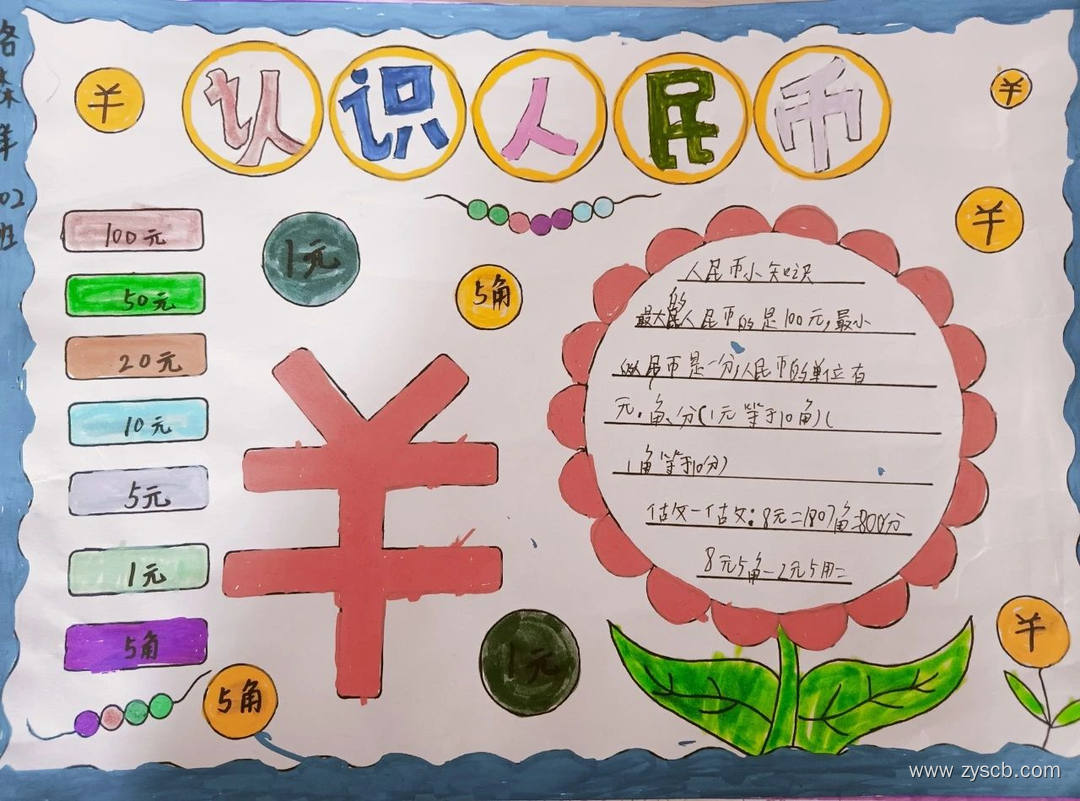 认识人民币
羊
02
班
100元
50元
20元
10元
5元
1元
5角
1元
5角
¥
1元
5角
人民币小知识
最大的人民币的是100元,最小
人民币是一分,人民币的单位有
元.角、分(1元等于10角)(
1角等于10分)
做一做:8元=(80)角=800分
8元5角-2元5角=
www.zyscb.com